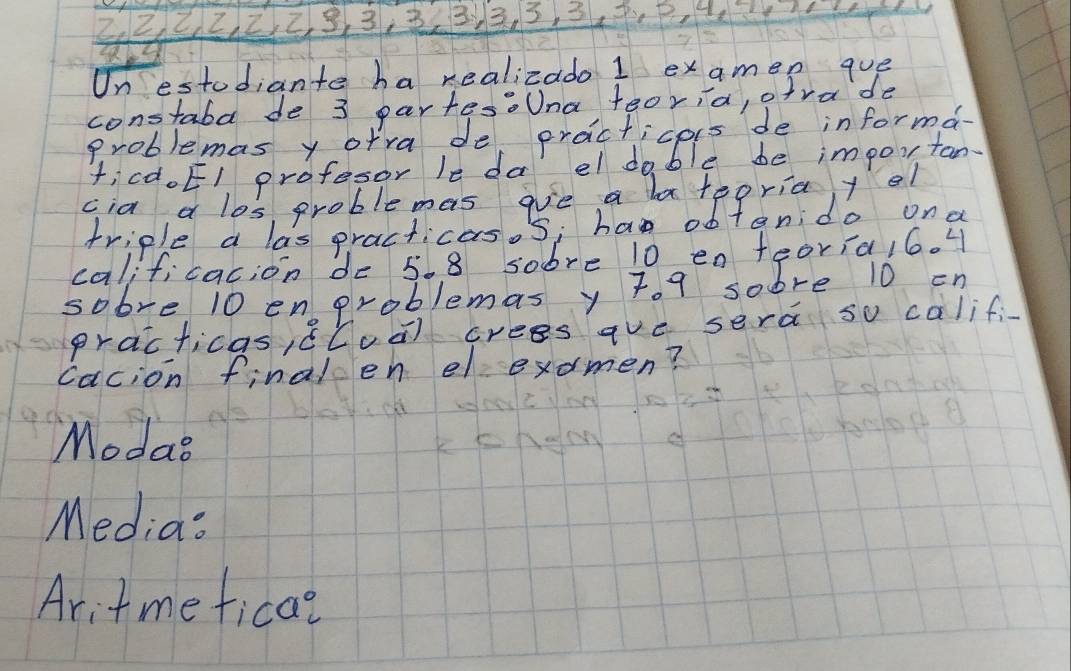 2, 2, 2, 2, 2, 2, 3, 3, 3, 3, 3, 3, 3, 3, 3, 4, 4,
4, 4
Un estudiante ha realizado 1 examen que
constaba de 3 partes: Una teoría, otra de
problemas y otra de prácticas de informá-
tica. El profesor le da el doble de importan-
cia a los problemas que a la teoría, y el
triple a las practicas. Si ha obtenido una
calificación de 5.8 sobre 10 en teoría, 6.4
sobre 10 en problemas y 7.9 sobre 10 en
prácticas, ¿Cuál crees que será su califi-
cación final en el examen?
Moda:
Media:
Aritmetica: